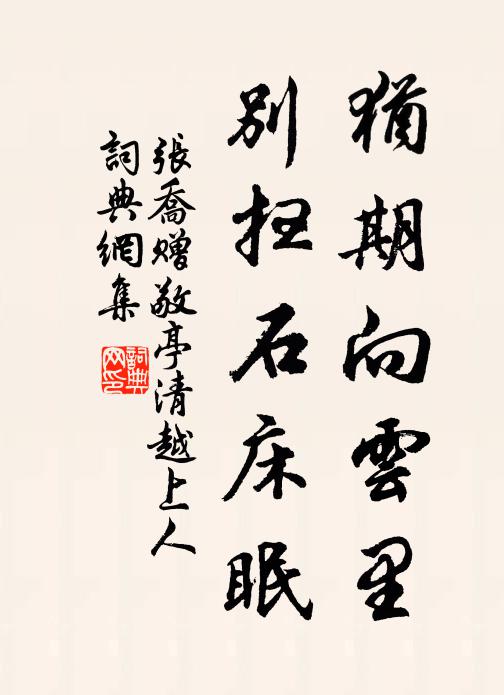 猶期向雲里
別扫石床眠
張喬贈敬亭清越上人
詞典網集
詞典网印